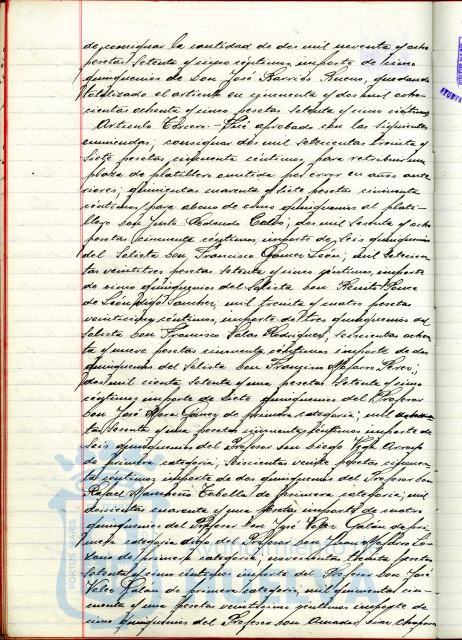 de, consignar la cantidad de dos mil noventa y ocho
pesetas setenta y cinco céntimos, importe de cinco
quinquenios de Don José Garrido Bueno, quedando
totalizado el artículo en cincuenta y dos mil ocho-
cientas ochenta y cinco pesetas setenta y cinco céntimos.
Artículo Tercero.- Fué aprobado con las siguientes
enmiendas; consignar dos mil setecientas treinta y
siete pesetas cincuenta céntimos, para retribuir una
plaza de platillero omitida por error en años ante-
riores; quinientas cuarenta y siete pesetas cincuenta
céntimos para abono de cinco quinquenios al plati-
llero don Justo Redondo Calvo; dos mil sesenta y ocho
pesetas cincuenta céntimos importe de seis quinquenios
del Solista don Francisco Gómez León; mil setecien-
tas veintitres pesetas setenta y cinco céntimos, importe
de cinco quinquenios del Solista don Ponce
de León Sánchez; mil treinta y cuatro pesetas
veinticinco céntimos, importe de tres quinquenios del
Solista don Francisco Salas Rodríguez; seiscientas ochen-
ta y nueve pesetas cincuenta céntimos importe de dos
quinquenios del Solista don Francisco Navarro Pérez;
dos mil ciento setenta y una pesetas setenta y cinco
céntimos importe de siete quinquenios del Profesor
don José Mora Gómez de primera categoría; mil ochocien-
tas sesenta y una pesetas cincuenta céntimos importe de
seis quinquenios del Profesor don Diego Vega
de primera categoría; seiscientas veinte pesetas cincuen-
ta céntimos importe de dos quinquenios del Profesor don
Rafael de primera categoría; mil
doscientas cuarenta y una pesetas importe de cuatro
quinquenios del Profesor don José Vélez Galán de pri-
mera categoría digo del Profesor don Juan Navarro Lo-
zano de primera categoría; treinta pesetas
setenta y cinco céntimos importe del Profesor don José
Vélez Galán de primera categoría; mil quinientas cin-
cuenta y una pesetas veinticinco céntimos importe de
cinco quinquenios del Profesor don Amador Díaz
PORTUS MARIS
Ayuntamiento de
HUELVA